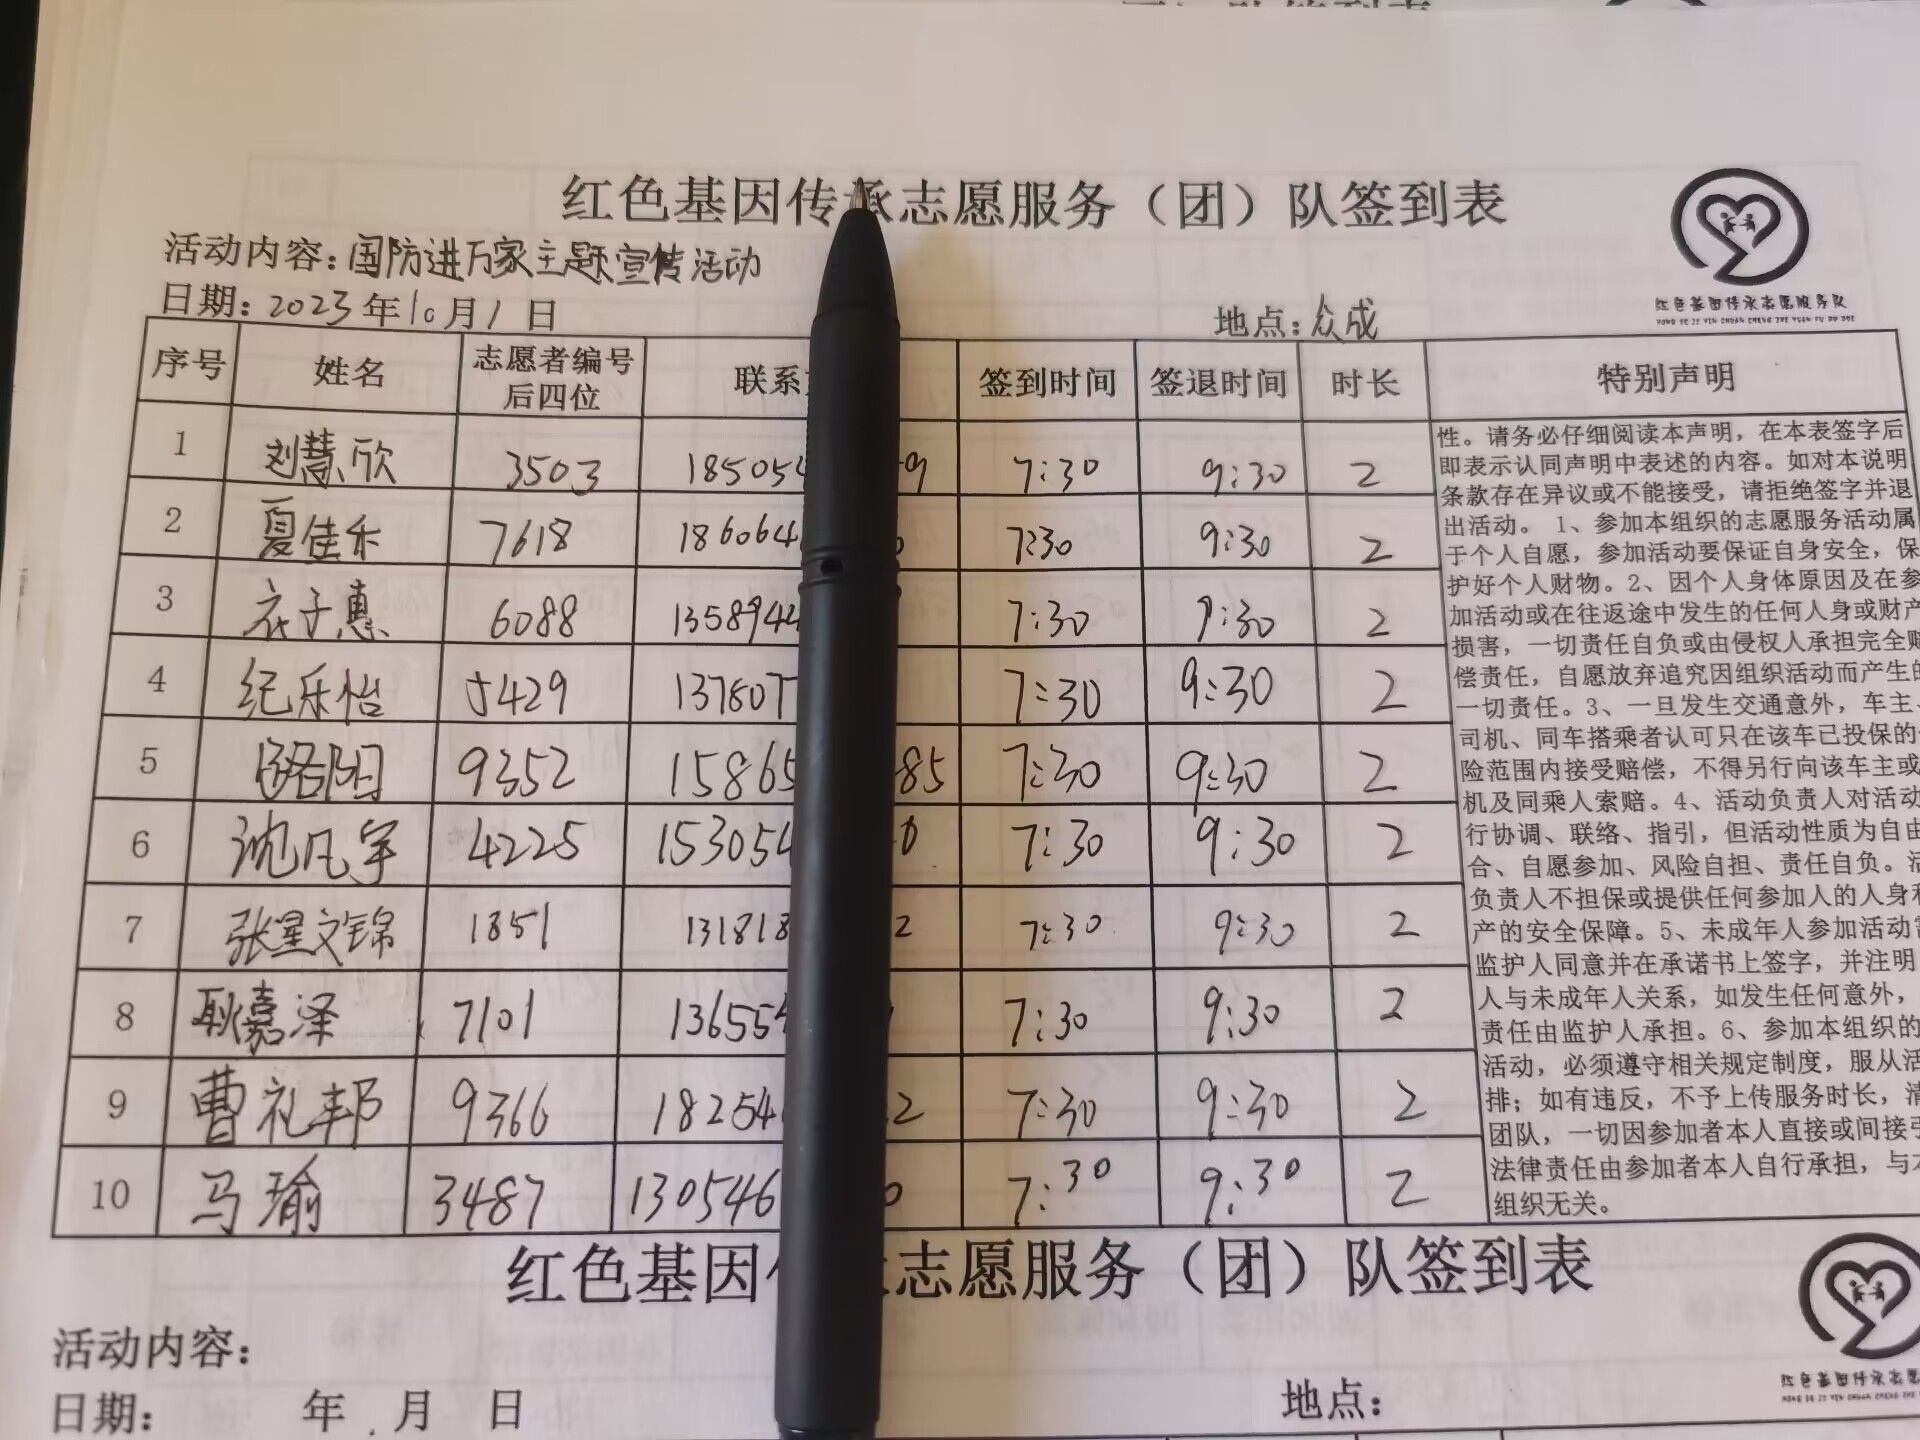 红色基因传承志愿服务（团）队签到表
活动内容：国防进万家主题宣传活动
日期：2023年10月1日 地点：众成
红色基因传承志愿服务队
HONG SE JI YIN CHUAN CHENG ZHI YUAN FU WU DUI
序号 姓名 志愿者编号后四位 联系 签到时间 签退时间 时长 特别声明
1 刘慧欣 3503 185054 9 7:30 9:30 2
2 夏佳禾 7618 186064 7:30 9:30 2
3 衣子惠 6088 1358944 7:30 9:30 2
4 纪乐怡 5429 137807 7:30 9:30 2
5 骆阳 9352 15865 85 7:30 9:30 2
6 沈凡宇 4225 153054 0 7:30 9:30 2
7 张星文锦 1851 131818 2 7:30 9:30 2
8 耿嘉泽 7101 136554 7:30 9:30 2
9 曹礼邦 9366 18254 2 7:30 9:30 2
10 马瑜 3487 130546 0 7:30 9:30 2
性。请务必仔细阅读本声明，在本表签字后
即表示认同声明中表述的内容。如对本说明
条款存在异议或不能接受，请拒绝签字并退
出活动。 1、参加本组织的志愿服务活动属
于个人自愿，参加活动要保证自身安全，保
护好个人财物。2、因个人身体原因及在参
加活动或在往返途中发生的任何人身或财产
损害，一切责任自负或由侵权人承担完全赔
偿责任，自愿放弃追究因组织活动而产生的
一切责任。3、一旦发生交通意外，车主、
司机、同车搭乘者认可只在该车已投保的
险范围内接受赔偿，不得另行向该车主或
机及同乘人索赔。4、活动负责人对活动
行协调、联络、指引，但活动性质为自由
合、自愿参加、风险自担、责任自负。活
负责人不担保或提供任何参加人的人身和
产的安全保障。5、未成年人参加活动需
监护人同意并在承诺书上签字，并注明
人与未成年人关系，如发生任何意外，
责任由监护人承担。6、参加本组织的
活动，必须遵守相关规定制度，服从活
排；如有违反，不予上传服务时长，清
团队，一切因参加者本人直接或间接引
法律责任由参加者本人自行承担，与本
组织无关。
红色基因 志愿服务（团）队签到表
活动内容：
日期： 年 月 日 地点：
红色基因传承志愿